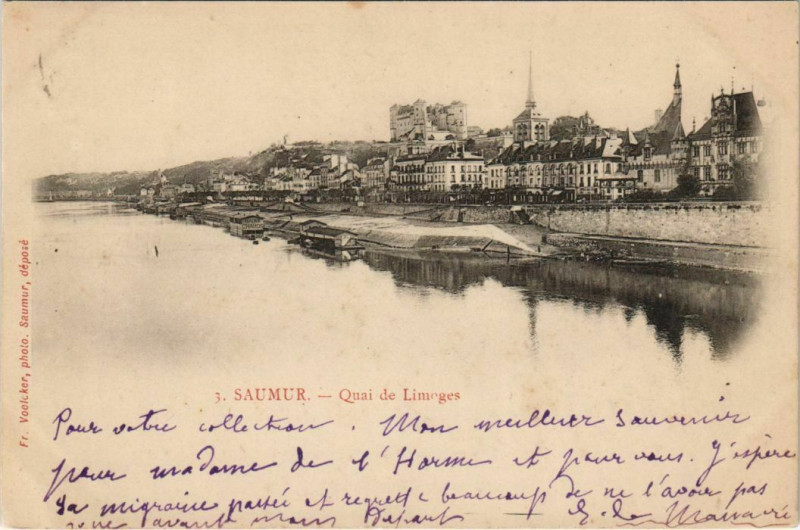 Fr. Voelcker, photo. Saumur, déposé
3. SAUMUR. — Quai de Limoges
Pour votre collection. Mon meilleur souvenir
pour madame de l'Horme et pour vous. J'espère
sa migraine passée et regrette beaucoup de ne l'avoir pas
vue avant mon Départ E. de